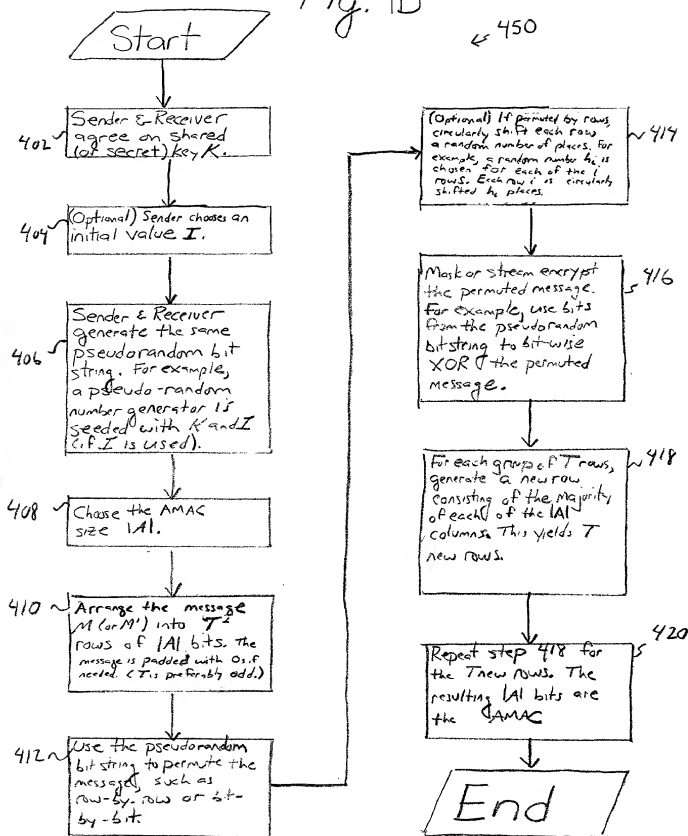 Fig. 1B
450
Start
402
Sender & Receiver
agree on shared
(or secret) key K.
404
(Optional) Sender chooses an
initial value I.
406
Sender & Receiver
generate the same
pseudorandom bit
string. For example,
a pseudo-random
number generator is
seeded with K and I
(if I is used).
408
Choose the AMAC
size |A|.
410
Arrange the message
M (or M') into T²
rows of |A| bits. The
message is padded with 0s if
needed. (T is preferably odd.)
412
Use the pseudorandom
bit string to permute the
message, such as
row-by-row or bit-
by-bit.
414
(Optional) If permuted by rows,
circularly shift each row
a random number of places. For
example, a random number hᵢ is
chosen for each of the i
rows. Each row i is circularly
shifted hᵢ places.
416
Mask or stream encrypt
the permuted message.
For example, use bits
from the pseudorandom
bitstring to bit-wise
XOR the permuted
message.
418
For each group of T rows,
generate a new row
consisting of the majority
of each of the |A|
columns. This yields T
new rows.
420
Repeat step 418 for
the T new rows. The
resulting |A| bits are
the AMAC
End